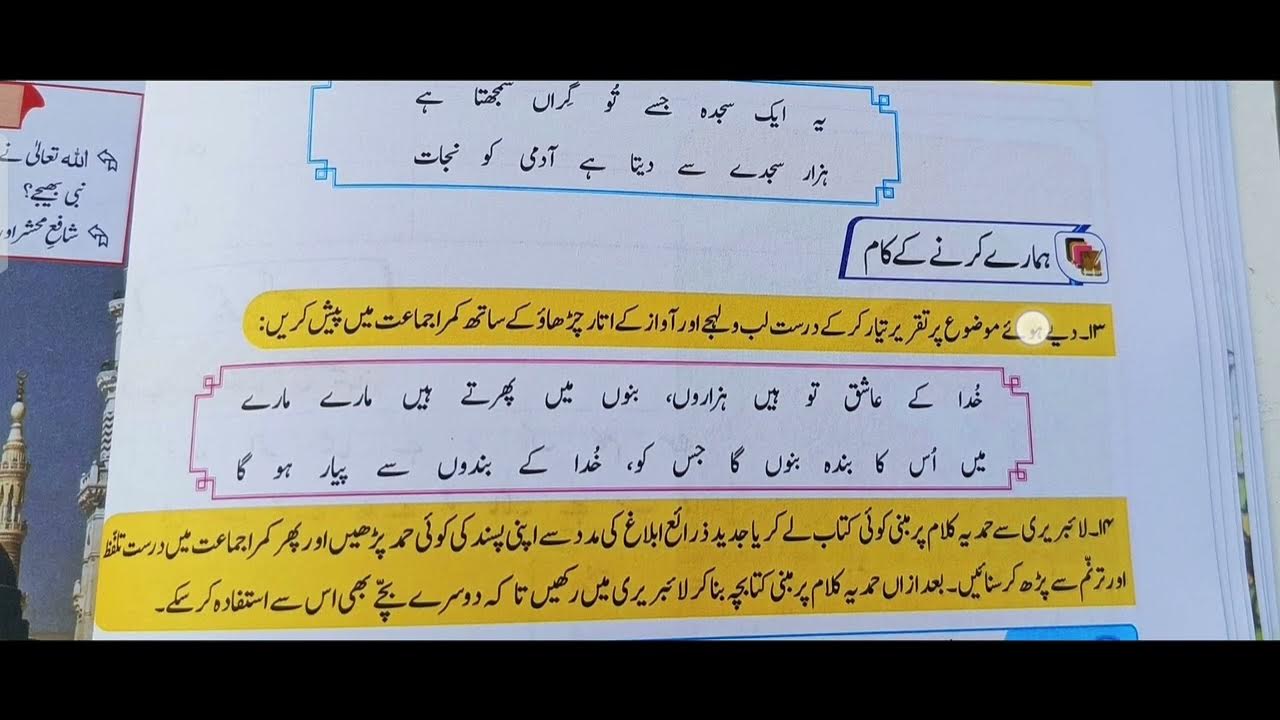 یہ ایک سجدہ جسے تُو گِراں سمجھتا ہے
ہزار سجدے سے دیتا ہے آدمی کو نجات
ہمارے کرنے کے کام
۱۳۔ دیے ہوئے موضوع پر تقریر تیار کر کے درست لب و لہجے اور آواز کے اتار چڑھاؤ کے ساتھ کمرا جماعت میں پیش کریں:
خُدا کے عاشق تو ہیں ہزاروں، بنوں میں پھرتے ہیں مارے مارے
میں اُس کا بندہ بنوں گا جس کو، خُدا کے بندوں سے پیار ہو گا
۱۴۔ لائبریری سے حمدیہ کلام پر مبنی کوئی کتاب لے کر یا جدید ذرائع ابلاغ کی مدد سے اپنی پسند کی کوئی حمد پڑھیں اور پھر کمرا جماعت میں درست تلفّظ
اور ترنّم سے پڑھ کر سنائیں۔ بعد ازاں حمدیہ کلام پر مبنی کتابچہ بنا کر لائبریری میں رکھیں تا کہ دوسرے بچّے بھی اس سے استفادہ کر سکے۔
اللہ تعالیٰ نے
نبی بھیجے؟
شافعِ محشر اور